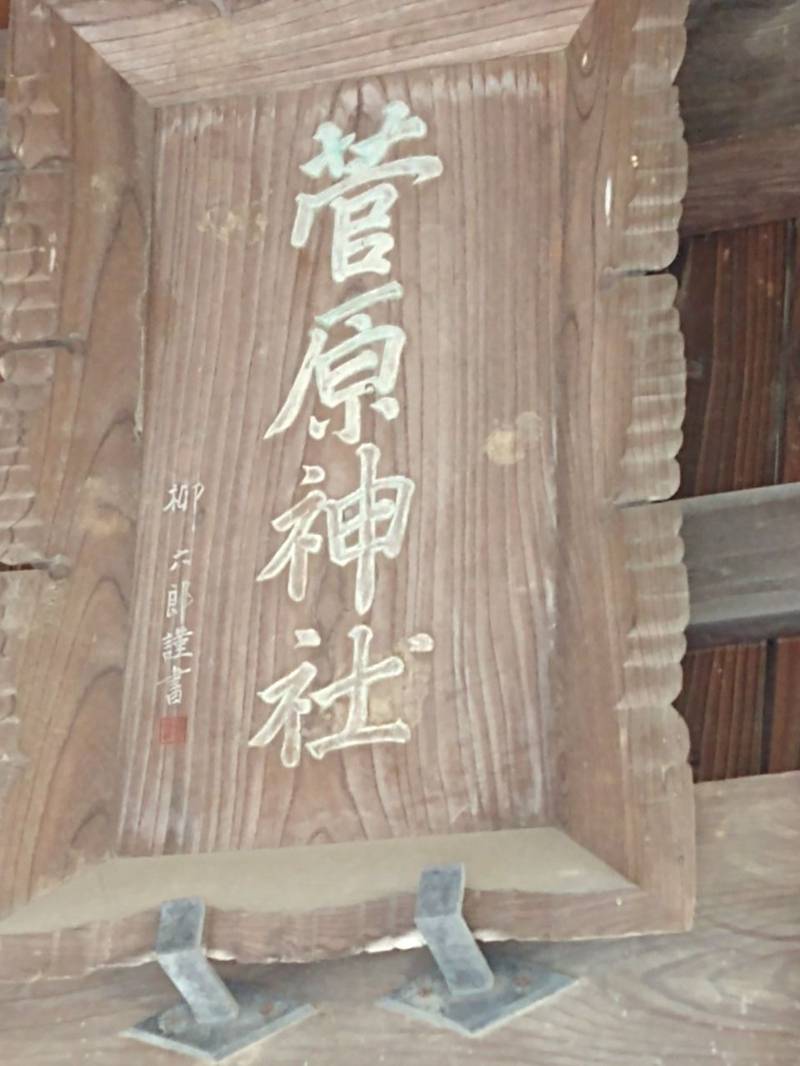 菅原神社
柳六郎謹書